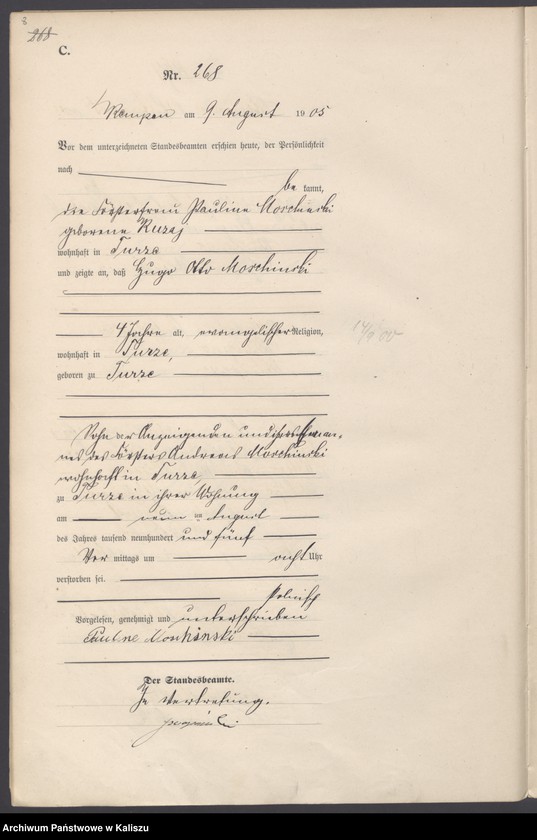 8
268
C.
Nr. 268
Kempen am 9. August 1905
Vor dem unterzeichneten Standesbeamten erschien heute, der Persönlichkeit
nach
be kannt,
die Försterfrau Pauline Moschinski
geborene Kuzaj
wohnhaft in Turze
und zeigte an, daß Hugo Otto Moschinski
4 Jahre alt, evangelischer Religion,
wohnhaft in Turze,
geboren zu Turze
Sohn der Anzeigenden und ihres Eheman-
nes des Försters Andreas Moschinski
wohnhaft in Turze,
zu Turze in ihrer Wohnung
am neun ten August
des Jahres tausend neunhundert und fünf
Vor mittags um acht Uhr
verstorben sei.
Polnisch
Vorgelesen, genehmigt und unterschrieben
Pauline Moschinski
Der Standesbeamte.
In Vertretung.
Archiwum Państwowe w Kaliszu